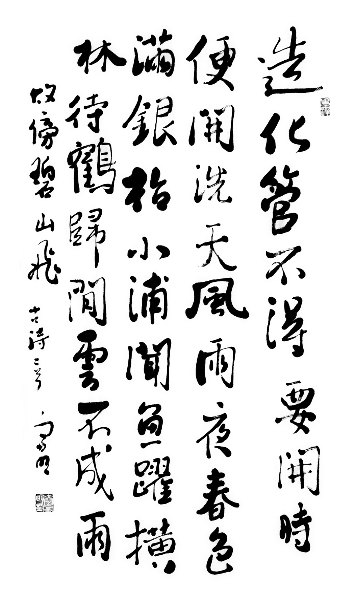 造化管不得要開時
便開洗天風雨夜春色
滿銀枱小浦聞魚躍橫
林待鶴歸閒雲不成雨
故傍碧山飛 古詩二首